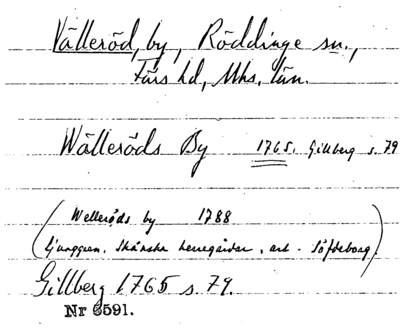 Välleröd, by, Röddinge sn.,
Färs hd, Mhs. län.
Wälleröds By 1765. Gillberg s. 79
(Welleröds by 1788
Ljunggren. Skånska herregårdar, art. Söfdeborg)
Gillberg 1765 s. 79.
Nr 6591.